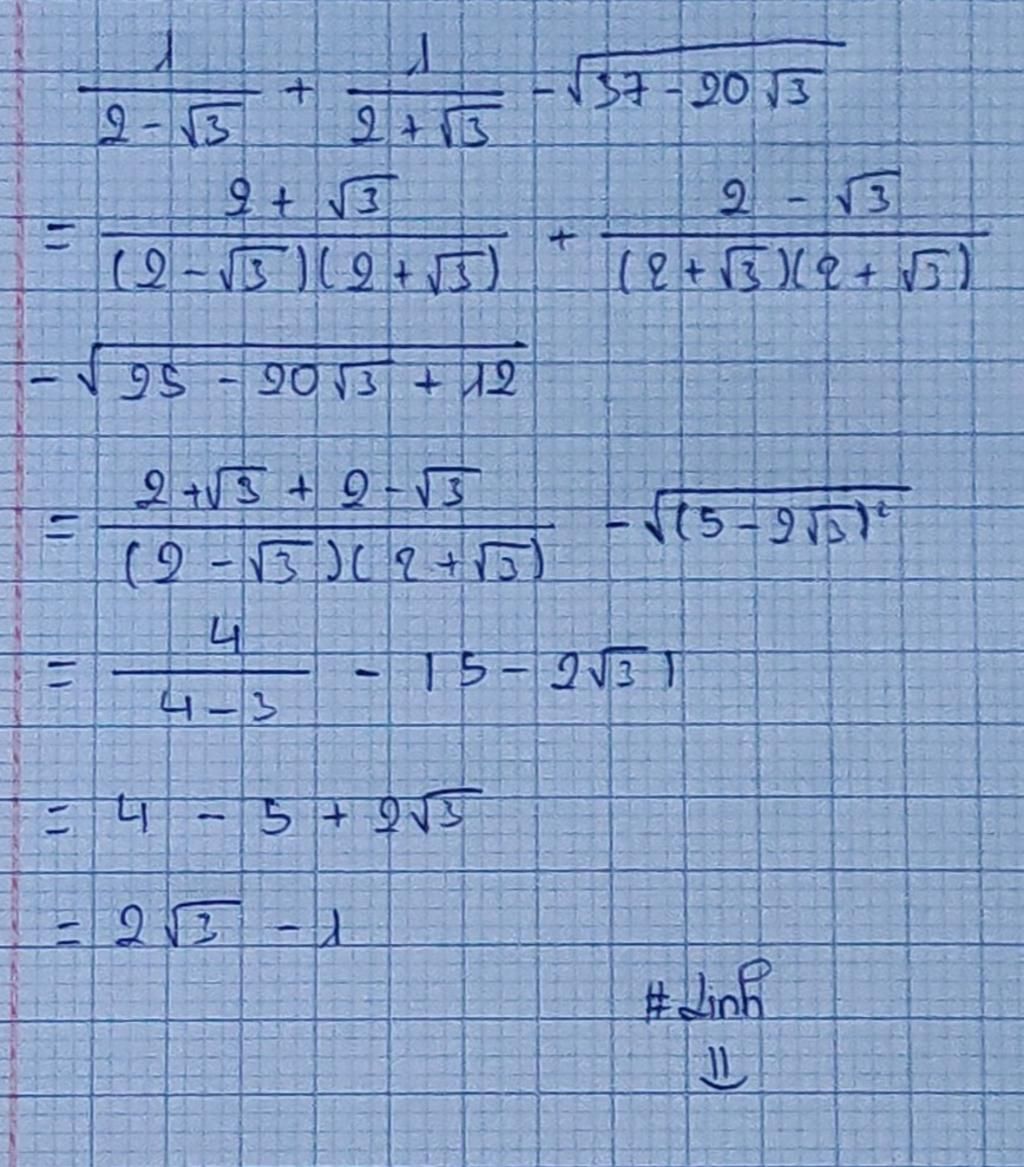 1/(2-√3) + 1/(2+√3) - √(37-20√3)
= (2+√3)/((2-√3)(2+√3)) + (2-√3)/((2+√3)(2+√3))
- √(25-20√3+12)
= (2+√3+2-√3)/((2-√3)(2+√3)) - √((5-2√3)²)
= 4/(4-3) - |5-2√3|
= 4 - 5 + 2√3
= 2√3 - 1
#Linh